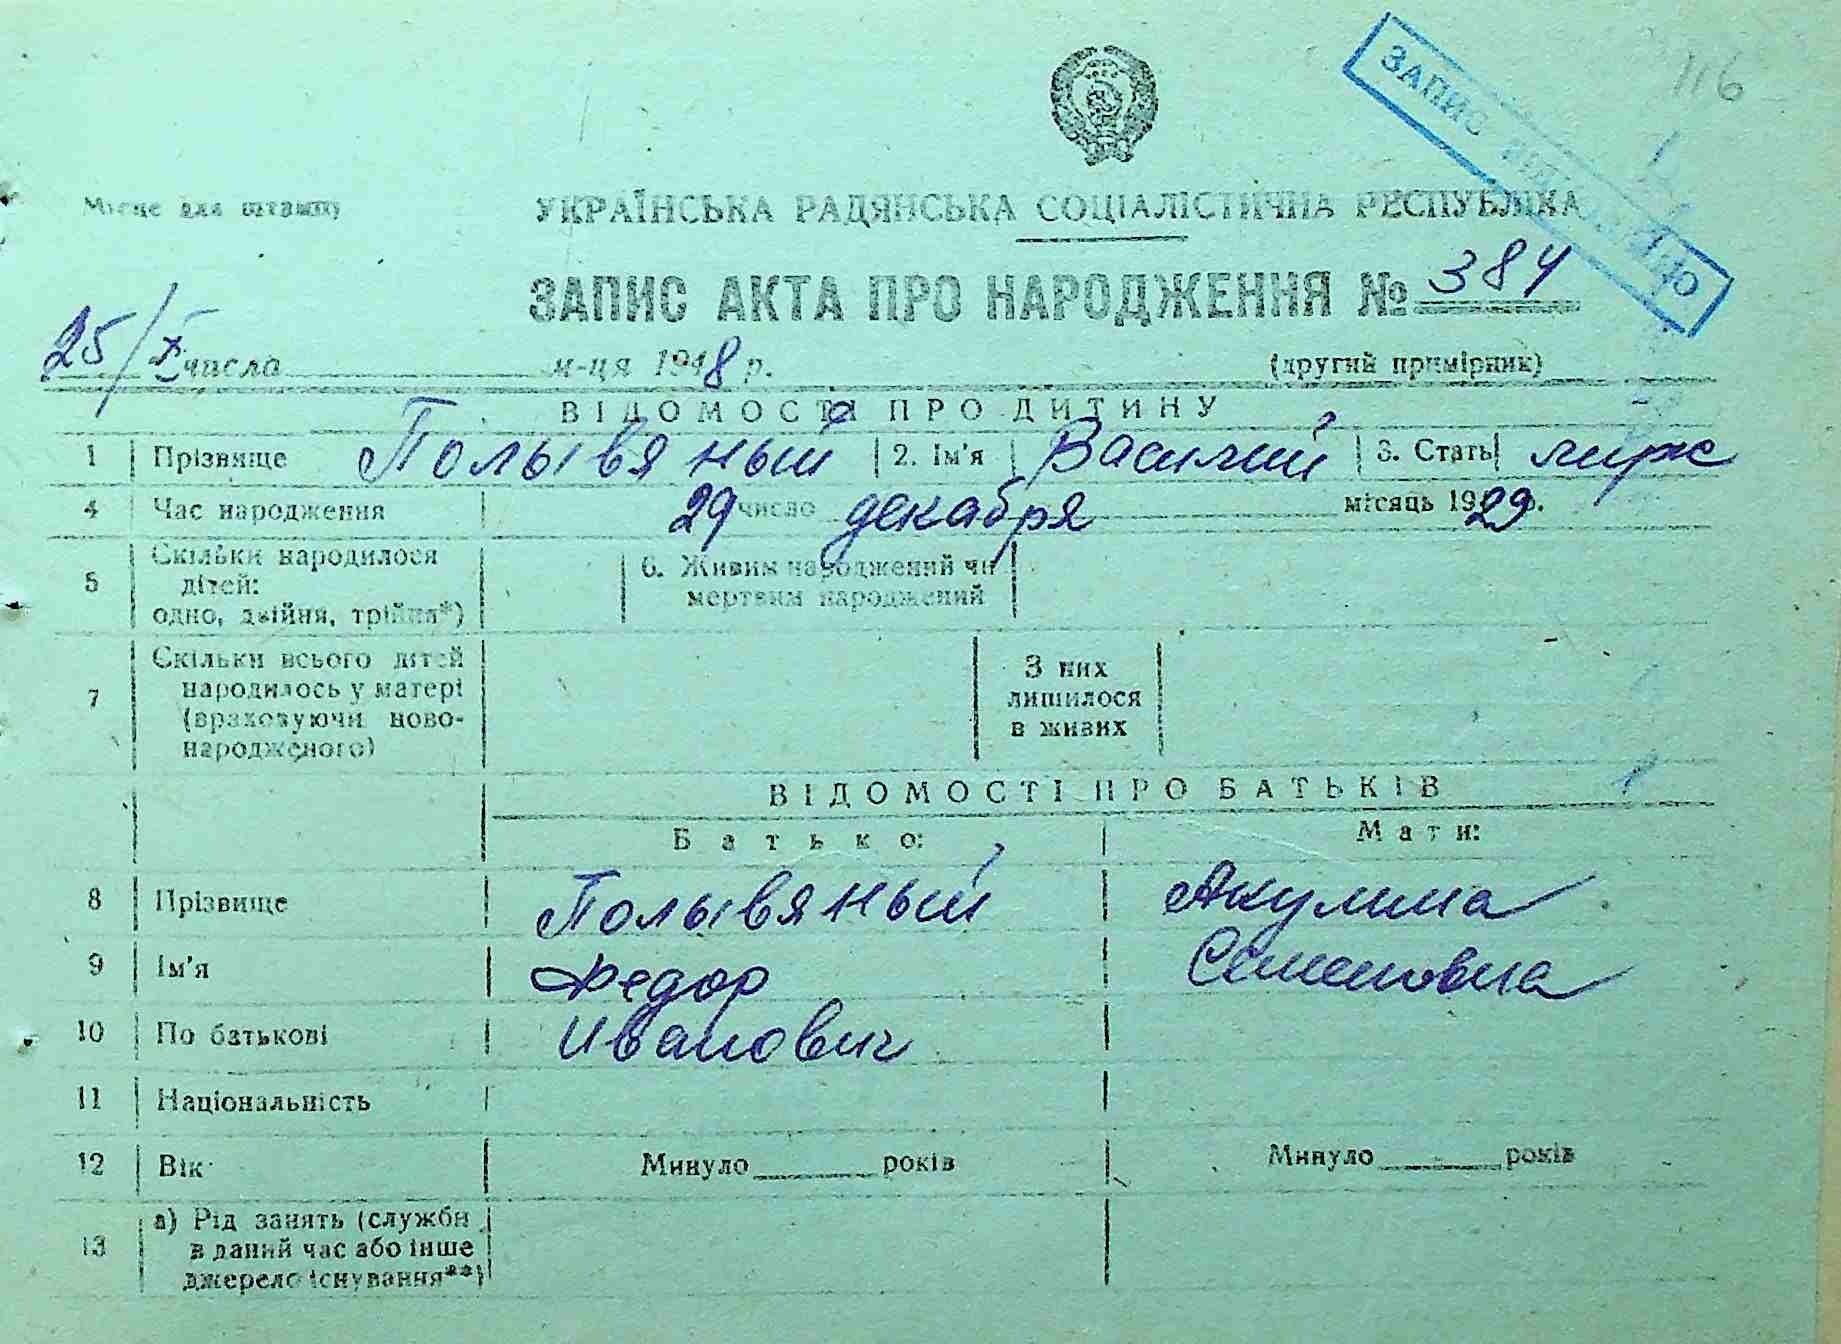 116
ЗАПИС ВІДНОВЛЕНО
Місце для штампу
УКРАЇНСЬКА РАДЯНСЬКА СОЦІАЛІСТИЧНА РЕСПУБЛІКА
ЗАПИС АКТА ПРО НАРОДЖЕННЯ № 384
25/X числа м-ця 1948 р. (другий примірник)
ВІДОМОСТІ ПРО ДИТИНУ
1 Прізвище Полывяный 2. Ім'я Василий 3. Стать муж
4 Час народження 29 число декабря місяць 1929 р.
5 Скільки народилося дітей: одно, двійня, трійня*) 6. Живим народжений чи мертвим народжений
7 Скільки всього дітей народилось у матері (враховуючи новонародженого) З них лишилося в живих
ВІДОМОСТІ ПРО БАТЬКІВ
Батько: Мати:
8 Прізвище Полывяный Акулина
9 Ім'я Федор Семеновна
10 По батькові Иванович
11 Національність
12 Вік Минуло років Минуло років
13 а) Рід занять (служби в даний час або інше джерело існування**)